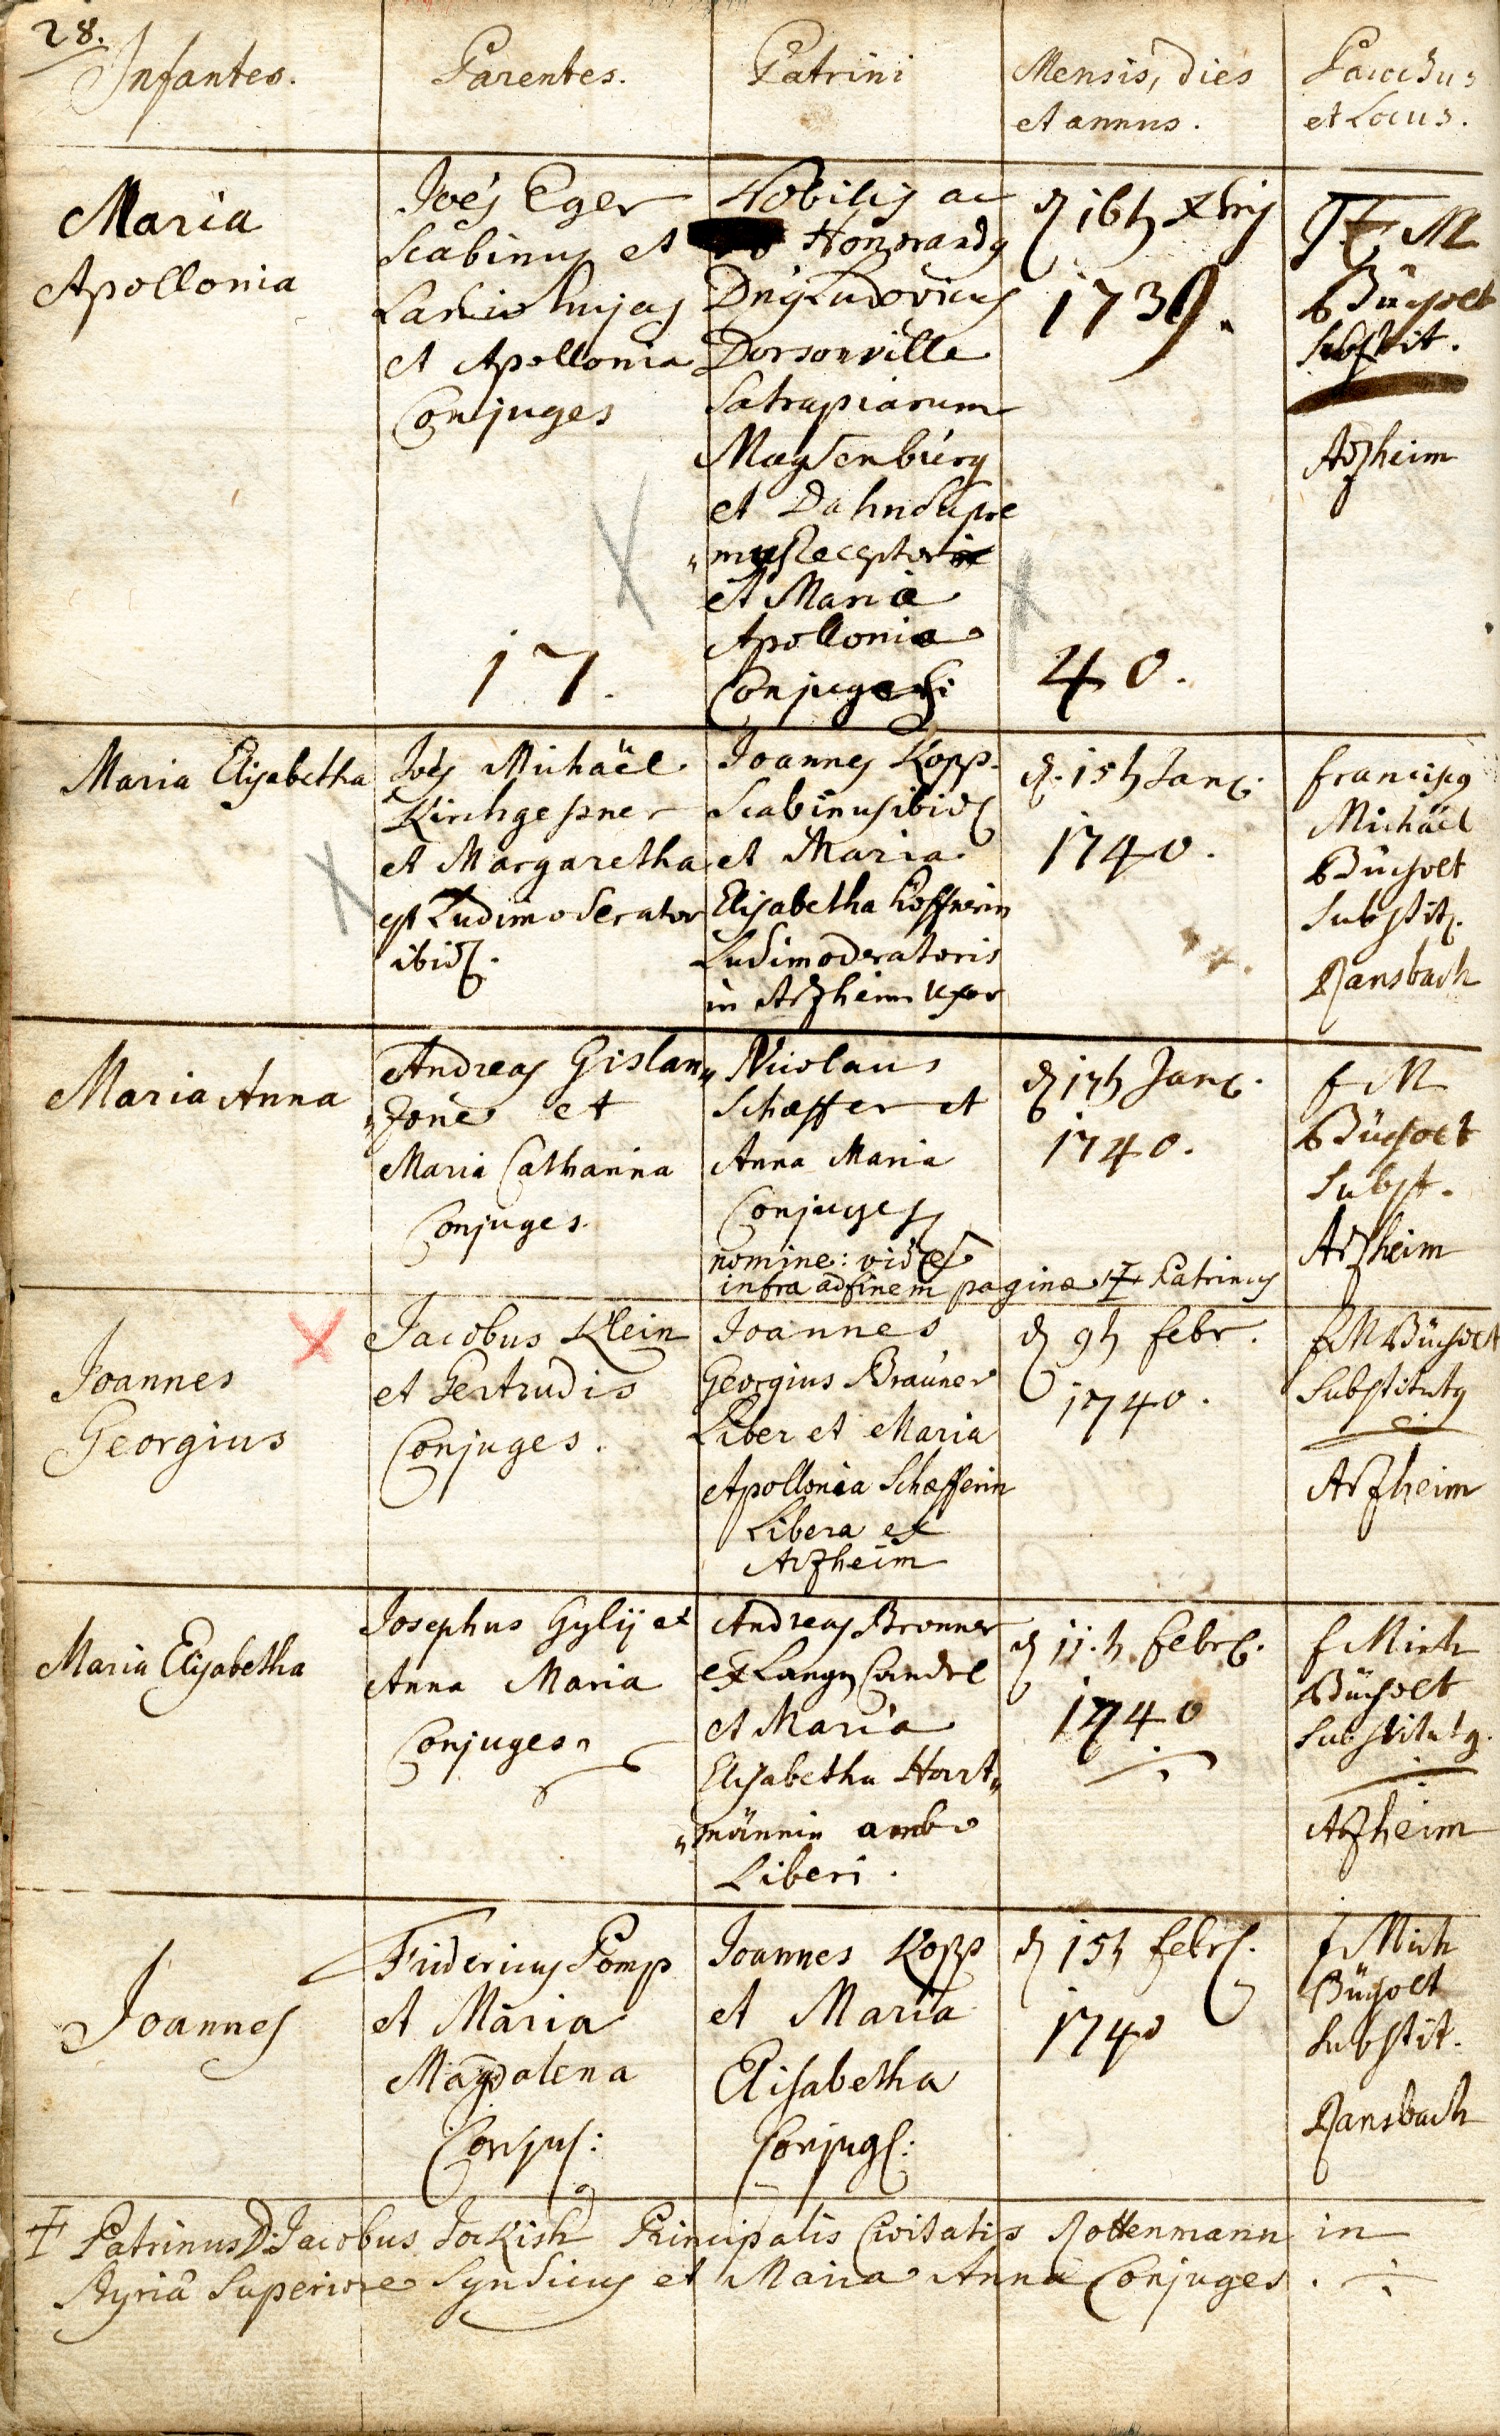 28.
Infantes.
Parentes.
Patrini
Mensis, dies
et annus.
Parochus
et Locus.
Maria
Apollonia
Joes Eger
Scabinus et
Lanio hujas
et Apollonia
Conjuges
Nobilis ac
Honorandg
Dng Ludovicus
Dorsonville
Satrapiarum
Magdenburg
et Dahn Supre
"mus Receptor
et Maria
Apollonia
Conjuges
d 16h Xbris
1739.
F M
Bücholt
Substit.
Arzheim
17.
40.
Maria Elisabetha
Joes Michäel
Kirchgessner
et Margaretha
est Ludimoderator
ibid.
Joannes Kopp.
Scabinus ibid
et Maria
Elisabetha Höffnerin
Ludimoderatoris
in Arzheim uxor
d. 15h Jan.
1740.
Franciscg
Michäel
Bücholt
Substit.
Ransbach
Maria Anna
Andreas Gislan"
"zone et
Maria Catharina
Conjuges.
Nicolaus
Schæffer et
Anna Maria
Conjuges
nomine: vide
infra ad finem paginæ Patrinus
d 17h Jan.
1740.
f M
Bücholt
Subst.
Arzheim
Joannes
Georgius
Jacobus Klein
et Gertrudis
Conjuges.
Joannes
Georgius Braüner
Liber et Maria
Apollonia Schæfferin
Libera ex
Arzheim
d 9h febr.
1740.
f M Bücholt
Substitutg
Arzheim
Maria Elisabetha
Josephus Gylij et
Anna Maria
Conjuges
Andreas Bronner
ex Langen Candel
et Maria
Elisabetha Hart"
"männin ambo
Liberi.
d 11.h febr.
1740
f Mich
Bücholt
Substitutg.
Arzheim
Joannes
Fridericus Pomp
et Maria
Magdalena
Conju:
Joannes Kopp
et Maria
Elisabetha
Conjug:
d 15h febr.
1740
f Mich
Bücholt
Substit.
Ransbach
Patrinus D: Jacobus Jockish Principalis Civitatis Rottenmann in
Styriâ Superiore Syndicus et Maria Anna Conjuges.